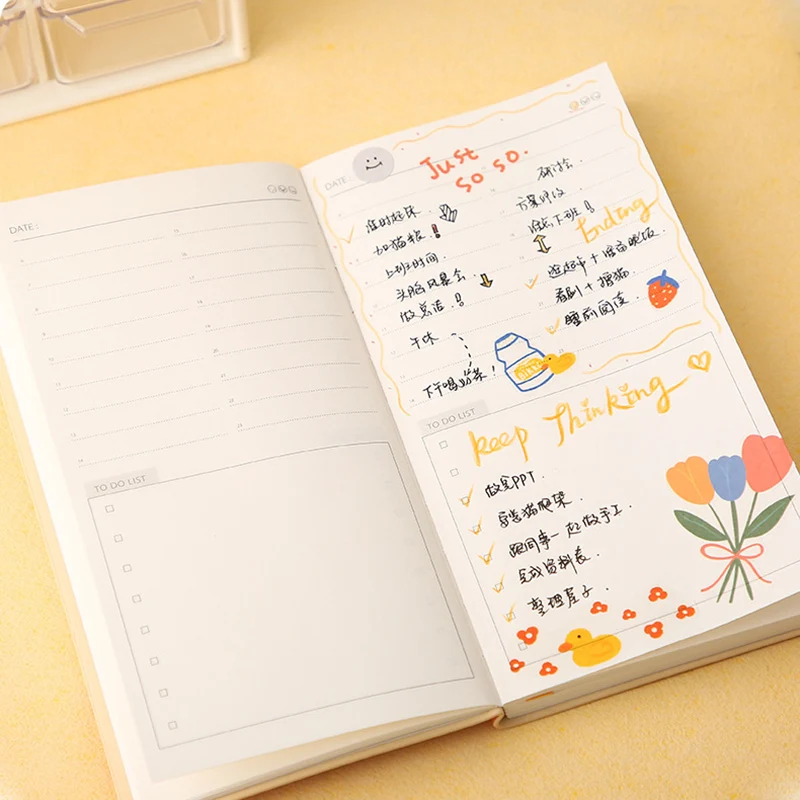 DATE:
TO DO LIST
DATE:
Just
so so.
准时起床.
加猫粮!
上班时间.
头脑风暴会.
做总结.!
午休
下午喝奶茶!
研讨会.
方案评价
准点下班!
Ending
逛超市+
晚饭.
看剧+撸猫
睡前阅读.
TO DO LIST
Keep Thinking
做完PPT.
猫爬架.
跟同事一起做手工.
完成资料表.
整理屋子.